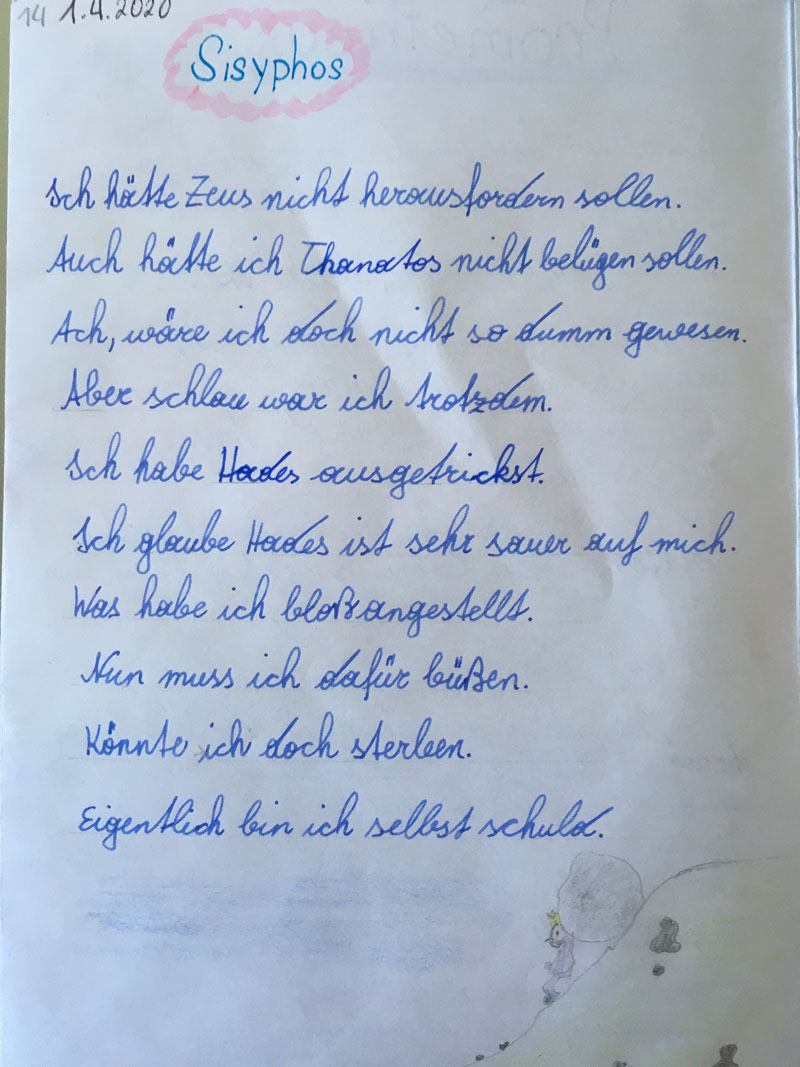 14 1.4.2020
Sisyphos
Ich hätte Zeus nicht herausfordern sollen.
Auch hätte ich Thanatos nicht belügen sollen.
Ach, wäre ich doch nicht so dumm gewesen.
Aber schlau war ich trotzdem.
Ich habe Hades ausgetrickst.
Ich glaube Hades ist sehr sauer auf mich.
Was habe ich bloß angestellt.
Nun muss ich dafür büßen.
Könnte ich doch sterben.
Eigentlich bin ich selbst schuld.